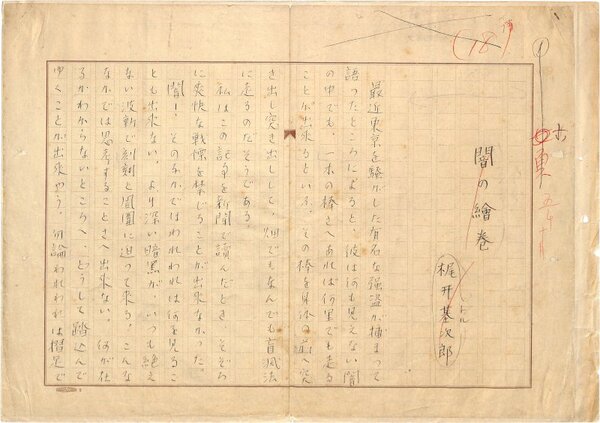 (18)
闇の繪巻
梶井基次郎
最近東京を騒がした有名な強盗が捕まって
語ったところによると、彼は何も見えない闇
の中でも、一本の棒さへあれば何里でも走る
ことが出来るといふ。その棒を身体の前へ突
き出し突き出しして、畑でもなんでも盲滅法
に走るのだそうである。
私はこの記事を新聞で讀んだとき、そぞろ
に爽快な戦慄を禁じることが出来なかった。
闇！ そのなかではわれわれは何を見るこ
とも出来ない。より深い暗黒が、いつも絶え
ない波動で刻刻と周圍に迫って来る。こんな
なかでは思考することさへ出来ない。何が在
るかわからないところへ、どうして踏込んで
ゆくことが出来やう。勿論われわれは摺足で